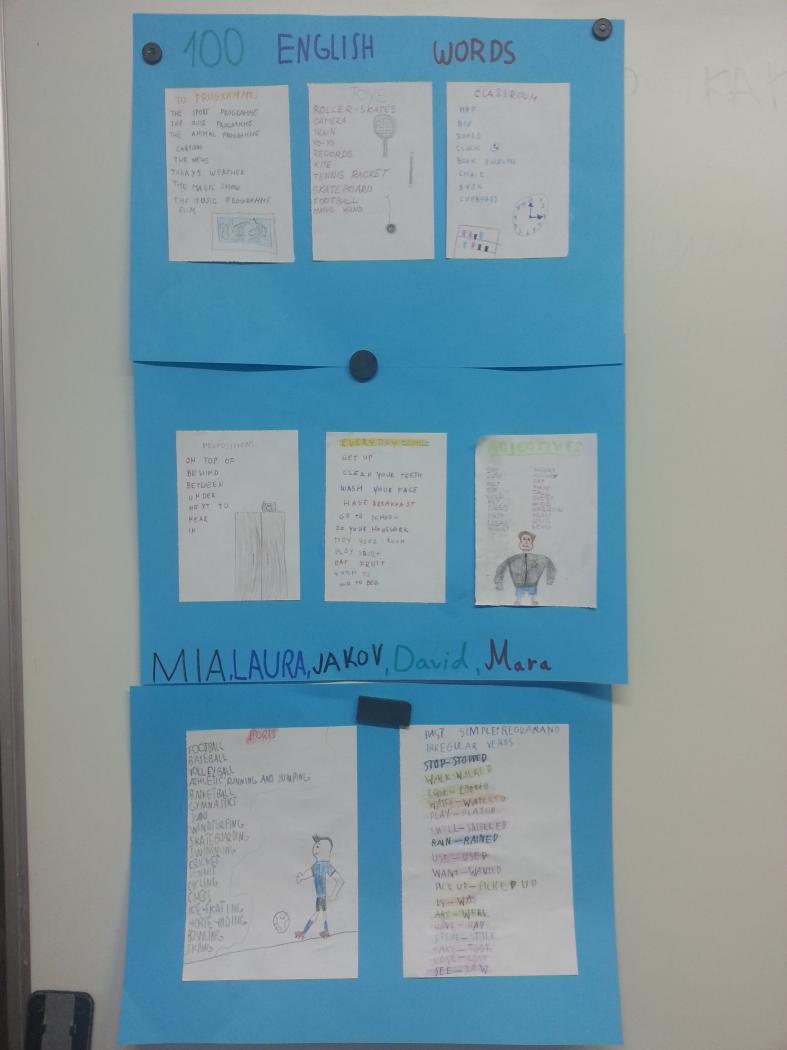 100 ENGLISH WORDS
TV PROGRAMMES
THE SPORT PROGRAMME
THE QUIZ PROGRAMME
THE ANIMAL PROGRAMME
CARTOON
THE NEWS
TODAYS WEATHER
THE MAGIC SHOW
THE MUSIC PROGRAMME
FILM
TOYS
ROLLER-SKATES
CAMERA
TRAIN
YO-YO
RECORDS
KITE
TENNIS RACKET
SKATEBOARD
FOOTBALL
MAGIC WAND
CLASSROOM
MAP
BIN
BOARD
CLOCK
BOOK SHELVES
CHAIR
DESK
CUPBOARD
PREPOSITIONS
ON TOP OF
BEHIND
BETWEEN
UNDER
NEXT TO
NEAR
IN
EVERYDAY
GET UP
CLEAN YOUR TEETH
WASH YOUR FACE
HAVE BREAKFAST
GO TO SCHOOL
DO YOUR HOMEWORK
TIDY YOUR ROOM
PLAY SPORT
EAT FRUIT
GO TO BED
ADJECTIVES
MIA, LAURA, JAKOV, David, Mara
SPORTS
FOOTBALL
BASEBALL
VOLLEYBALL
ATHLETIC: RUNNING AND JUMPING
BASKETBALL
GYMNASTIKS
JUDO
WINDSURFING
SKATEBOARDING
SWIMMING
CRICKET
TENNIS
CYCLING
CHESS
ICE-SKATING
HORSE-RIDING
BOWLING
SKIING
PAST SIMPLE: REGULAR AND
IRREGULAR VERBS
STOP-STOPPED
WALK-WALKED
LOOK-LOOKED
WATCH-WATCHED
PLAY-PLAYED
SMELL-SMELLED
RAIN-RAINED
USE-USED
WANT-WANTED
PICK UP-PICKED UP
IS-WAS
ARE-WERE
HAVE-HAD
STEAL-STOLE
TAKE-TOOK
LOSE-LOST
SEE-SAW